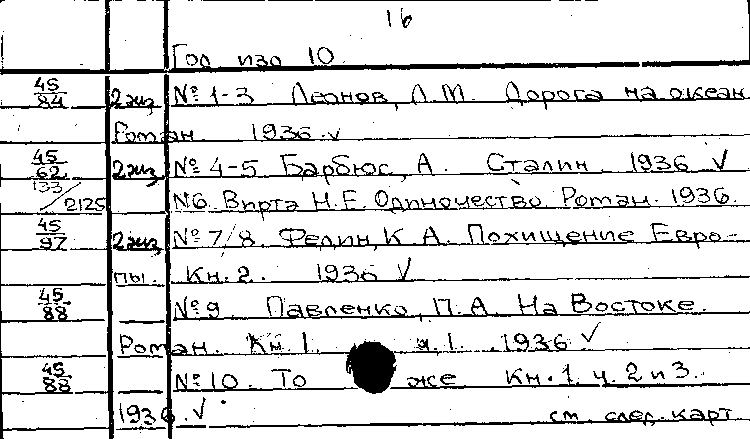 16
Год изд 10
45/84 2 экз № 1-3 Леонов, Л.М. Дорога на океан
Роман 1936 ✓
45/62 2 экз № 4-5 Барбюс, А. Сталин. 1936 ✓
133/2125 №6. Вирта Н.Е. Одиночество Роман. 1936.
45/97 2 экз № 7/8. Федин, К.А. Похищение Евро-
пы. Кн. 2. 1936 ✓
45/88 №9 Павленко, П.А. На Востоке.
Роман. Кн. 1. ч. 1. 1936 ✓
45/88 №10. То же Кн. 1. ч. 2 и 3.
1936. ✓ см. след. карт